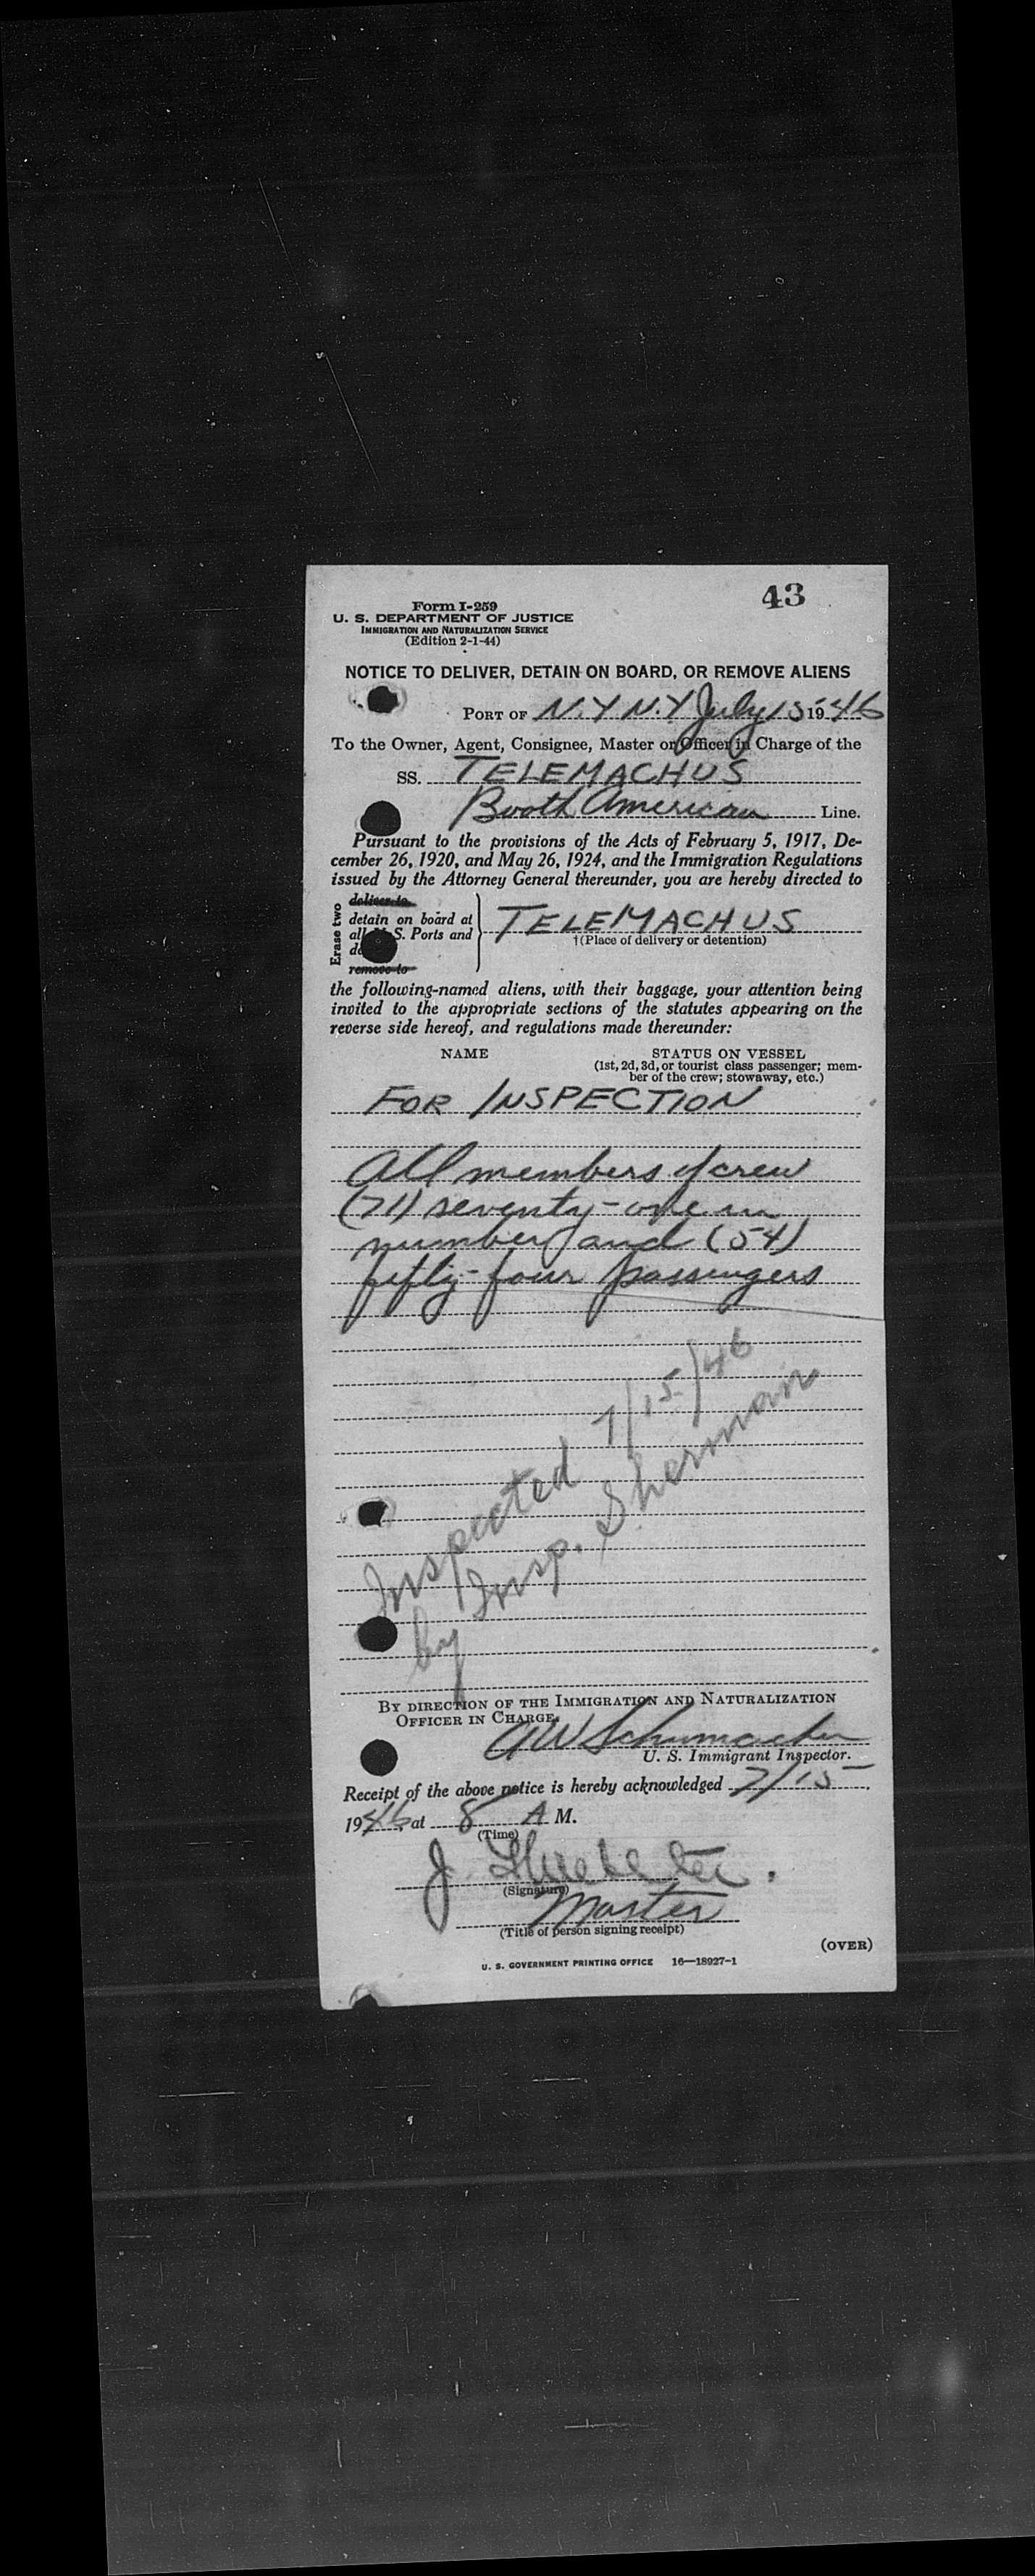 43
Form I-259
U. S. DEPARTMENT OF JUSTICE
IMMIGRATION AND NATURALIZATION SERVICE
(Edition 2-1-44)
NOTICE TO DELIVER, DETAIN ON BOARD, OR REMOVE ALIENS
PORT OF N.Y N.Y July 15 1946
To the Owner, Agent, Consignee, Master or Officer in Charge of the
SS. TELEMACHUS
Booth American Line.
Pursuant to the provisions of the Acts of February 5, 1917, De-
cember 26, 1920, and May 26, 1924, and the Immigration Regulations
issued by the Attorney General thereunder, you are hereby directed to
Erase two
deliver to
detain on board at
all S. Ports and
remove to
TELEMACHUS
†(Place of delivery or detention)
the following-named aliens, with their baggage, your attention being
invited to the appropriate sections of the statutes appearing on the
reverse side hereof, and regulations made thereunder:
NAME STATUS ON VESSEL
(1st, 2d, 3d, or tourist class passenger; mem-
ber of the crew; stowaway, etc.)
FOR INSPECTION
All members of crew
(71) seventy-one in
number and (54)
fifty-four passengers
Inspected 7/15/46
by Insp. Sherman
BY DIRECTION OF THE IMMIGRATION AND NATURALIZATION
OFFICER IN CHARGE.
A W Schumacher
U. S. Immigrant Inspector.
Receipt of the above notice is hereby acknowledged 7/15,
1946, at 8 A M.
(Time)
J.
(Signature)
Master
(Title of person signing receipt)
(OVER)
U. S. GOVERNMENT PRINTING OFFICE 16—18927-1